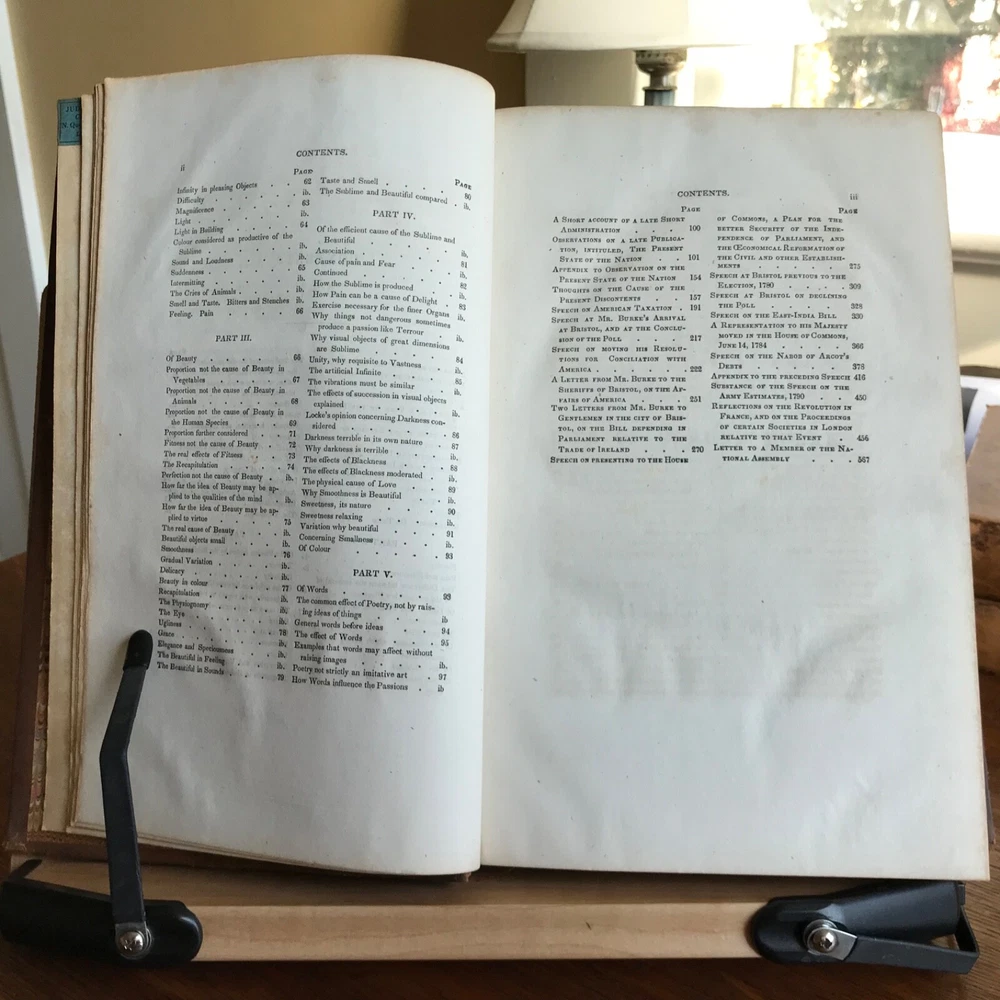 ii
CONTENTS.
PAGE
Infinity in pleasing Objects . . 62
Difficulty . . . . . ib.
Magnificence . . . . . 63
Light . . . . . ib.
Light in Building . . . . 64
Colour considered as productive of the
Sublime . . . . . ib.
Sound and Loudness . . . ib.
Suddenness . . . . . 65
Intermitting . . . . . ib.
The Cries of Animals . . . . ib.
Smell and Taste. Bitters and Stenches ib.
Feeling. Pain . . . . 66
PART III.
Of Beauty . . . . . 66
Proportion not the cause of Beauty in
Vegetables . . . . . 67
Proportion not the cause of Beauty in
Animals . . . . . 68
Proportion not the cause of Beauty in
the Human Species . . . . 69
Proportion further considered . . 71
Fitness not the cause of Beauty . . 72
The real effects of Fitness . . 73
The Recapitulation . . . . 74
Perfection not the cause of Beauty . ib.
How far the idea of Beauty may be ap-
plied to the qualities of the mind . ib.
How far the idea of Beauty may be ap-
plied to virtue . . . . 75
The real cause of Beauty . . ib.
Beautiful objects small . . . ib.
Smoothness . . . . . 76
Gradual Variation . . . . ib.
Delicacy . . . . . ib.
Beauty in colour . . . . 77
Recapitulation . . . . ib.
The Physiognomy . . . . ib.
The Eye . . . . . ib.
Ugliness . . . . . ib.
Grace . . . . . 78
Elegance and Speciousness . . ib.
The Beautiful in Feeling . . . ib.
The Beautiful in Sounds . . . 79
PAGE
Taste and Smell . . . . 80
The Sublime and Beautiful compared . ib.
PART IV.
Of the efficient cause of the Sublime and
Beautiful . . . . .
Association . . . . . ib.
Cause of pain and Fear . . . 81
Continued . . . . . ib.
How the Sublime is produced . . 82
How Pain can be a cause of Delight . ib.
Exercise necessary for the finer Organs 83
Why things not dangerous sometimes
produce a passion like Terrour . ib.
Why visual objects of great dimensions
are Sublime . . . . .
Unity, why requisite to Vastness . 84
The artificial Infinite . . . ib.
The vibrations must be similar . . 85
The effects of succession in visual objects
explained . . . . . ib.
Locke's opinion concerning Darkness con-
sidered . . . . .
Darkness terrible in its own nature . 86
Why darkness is terrible . . . 87
The effects of Blackness . . . ib.
The effects of Blackness moderated . 88
The physical cause of Love . . ib.
Why Smoothness is Beautiful . . 89
Sweetness, its nature . . . ib.
Sweetness relaxing . . . . 90
Variation why beautiful . . . 91
Concerning Smallness . . . ib.
Of Colour . . . . . 93
PART V.
Of Words . . . . . 93
The common effect of Poetry, not by rais-
ing ideas of things . . . ib
General words before ideas . . 94
The effect of Words . . . . 95
Examples that words may affect without
raising images . . . . ib.
Poetry not strictly an imitative art . 97
How Words influence the Passions . ib
CONTENTS.
iii
PAGE
A Short account of a late Short
Administration . . . 100
Observations on a late Publica-
tion, intituled, The Present
State of the Nation . . 101
Appendix to Observation on the
Present State of the Nation 154
Thoughts on the Cause of the
Present Discontents . . 157
Speech on American Taxation . 191
Speech at Mr. Burke's Arrival
at Bristol, and at the Conclu-
sion of the Poll . . . 217
Speech on moving his Resolu-
tions for Conciliation with
America . . . . 222
A Letter from Mr. Burke to the
Sheriffs of Bristol, on the Af-
fairs of America . . . 251
Two Letters from Mr. Burke to
Gentlemen in the city of Bris-
tol, on the Bill depending in
Parliament relative to the
Trade of Ireland . . . 270
Speech on presenting to the House
PAGE
of Commons, a Plan for the
better Security of the Inde-
pendence of Parliament, and
the Œconomical Reformation of
the Civil and other Establish-
ments . . . . 275
Speech at Bristol previous to the
Election, 1780 . . . 309
Speech at Bristol on declining
the Poll . . . . 328
Speech on the East-India Bill 330
A Representation to his Majesty
moved in the House of Commons,
June 14, 1784 . . . 366
Speech on the Nabob of Arcot's
Debts . . . . 378
Appendix to the preceding Speech 416
Substance of the Speech on the
Army Estimates, 1790 . . 450
Reflections on the Revolution in
France, and on the Proceedings
of certain Societies in London
relative to that Event . 456
Letter to a Member of the Na-
tional Assembly . . . 567